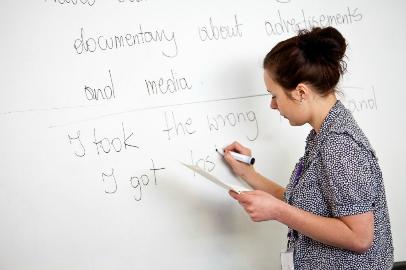 documentary about advertisements
and media
I took the wrong and
I got los